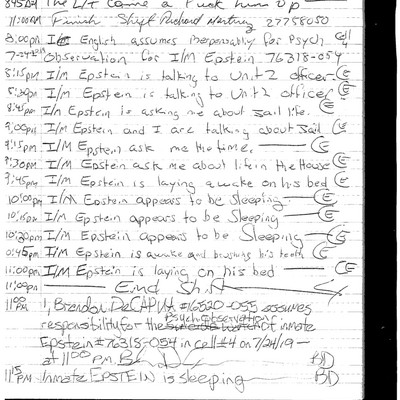 8:45AM The L/T came a Puck him up
11:00AM Finish Shift Richard 27758050
8:00pm I/m English assumes Responsability for Psych Cell 4
7-24 Observation for I/M Epstein 76318-054
8:15pm I/m Epstein is talking to Unit 2 officer CE
8:30pm I/m Epstein is talking to Unit 2 officer CE
8:45pm I/m Epstein is asking me about Jail life. CE
9:00pm I/m Epstein and I are talking about Jail CE
9:15pm I/m Epstein ask me the time. CE
9:30pm I/m Epstein ask me about life in the House CE
9:45pm I/m Epstein is laying awake on his bed CE
10:00pm I/M Epstein appears to be Sleeping CE
10:15pm I/m Epstein appears to be Sleeping CE
10:30pm I/M Epstein appears to be Sleeping CE
10:45pm I/M Epstein is awake and brushing his teeth CE
11:00pm I/M Epstein is laying on his bed CE
11:00pm End Shift
11:00 PM I, Brendan #16520-055 assumes
Psych Observation
responsibility for the of inmate
Epstein #76318-054 in cell #4 on 7/24/19
at 11:00 P.M. BD
11:15 PM Inmate EPSTEIN is sleeping BD